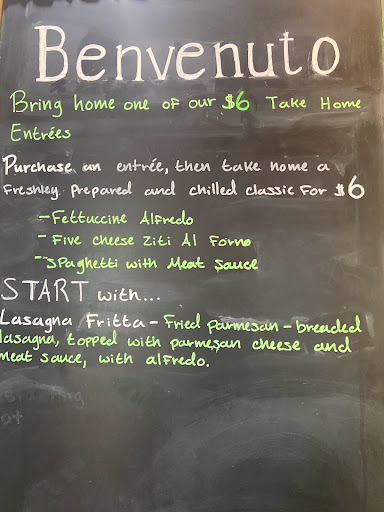 Benvenuto
Bring home one of our $6 Take Home
Entrées
Purchase an entrée, then take home a
Freshley Prepared and chilled classic For $6
- Fettuccine Alfredo
- Five cheese Ziti Al Forno
- Spaghetti with Meat Sauce
START with...
Lasagna Fritta - Fried parmesan - breaded
lasagna, topped with parmesan cheese and
meat sauce, with alfredo.